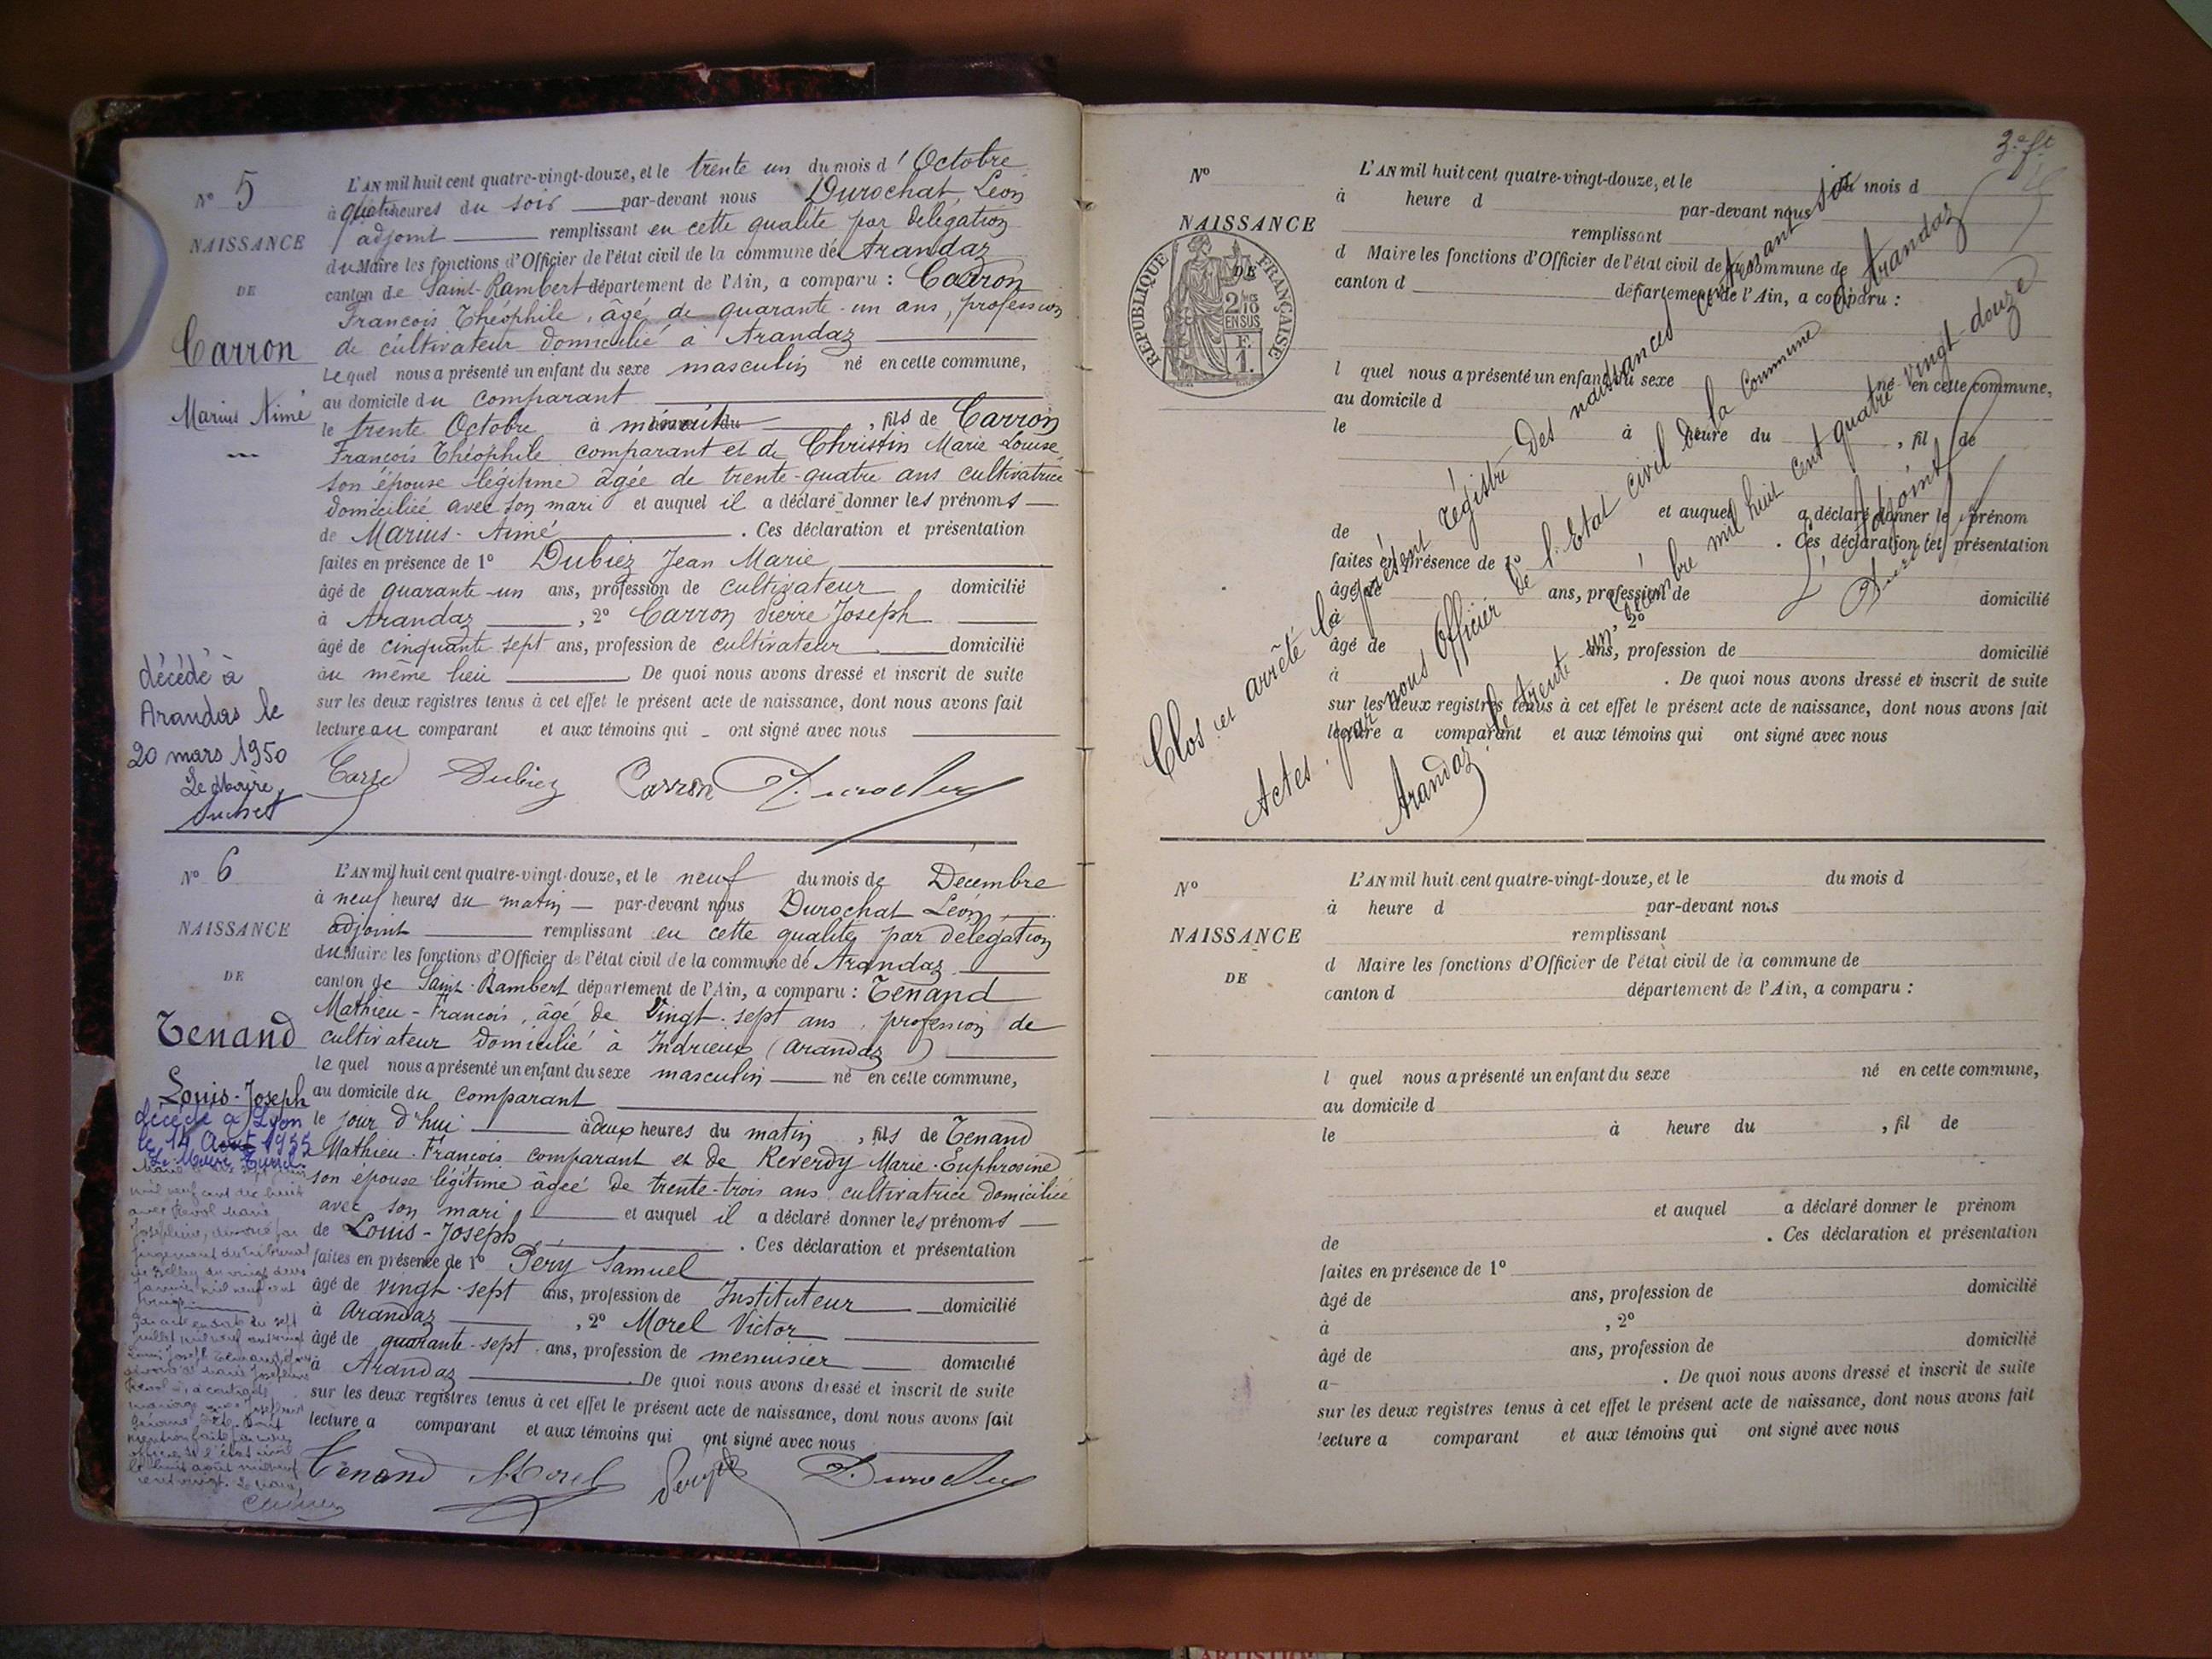 N° 5
NAISSANCE
DE
Carron
Marius Aimé
décédé à
Arandas le
20 mars 1950
Le Maire,
L'AN mil huit cent quatre-vingt-douze, et le trente un du mois d'Octobre
à quatre heures du soir par-devant nous Durochat, Léon
adjoint remplissant en cette qualité par délégation
du Maire les fonctions d'Officier de l'état civil de la commune de Arandaz
canton de Saint-Rambert département de l'Ain, a comparu : Carron
François Théophile, âgé de quarante-un ans, profession
de cultivateur domicilié à Arandaz
Lequel nous a présenté un enfant du sexe masculin né en cette commune,
au domicile du comparant
le trente Octobre à minuit, fils de Carron
François Théophile comparant et de Christin Marie Louise
son épouse légitime âgée de trente-quatre ans cultivatrice
domiciliée avec son mari et auquel il a déclaré donner les prénoms
de Marius-Aimé. Ces déclaration et présentation
faites en présence de 1° Dubiez Jean Marie
âgé de quarante-un ans, profession de cultivateur domicilié
à Arandaz, 2° Carron Pierre Joseph
âgé de cinquante sept ans, profession de cultivateur domicilié
au même lieu De quoi nous avons dressé et inscrit de suite
sur les deux registres tenus à cet effet le présent acte de naissance, dont nous avons fait
lecture au comparant et aux témoins qui ont signé avec nous
Dubiez Carron
N° 6
NAISSANCE
DE
Tenand
Louis-Joseph
décédé à Lyon
le 14 Août 1955
Le Maire
mil neuf cent dix huit
avec Revol Marie
Joséphine, divorcé par
jugement du tribunal
de Belley du vingt deux
janvier mil neuf cent
L'AN mil huit cent quatre-vingt-douze, et le neuf du mois de Décembre
à neuf heures du matin par-devant nous Durochat Léon
adjoint remplissant en cette qualité par délégation
du Maire les fonctions d'Officier de l'état civil de la commune de Arandaz
canton de Saint-Rambert département de l'Ain, a comparu : Tenand
Mathieu-François, âgé de vingt-sept ans, profession de
cultivateur domicilié à Indrieux (Arandaz)
lequel nous a présenté un enfant du sexe masculin né en cette commune,
au domicile du comparant
le jour d'hui à deux heures du matin, fils de Tenand
Mathieu-François comparant et de Reverdy Marie-Euphrosine
son épouse légitime âgée de trente-trois ans cultivatrice domiciliée
avec son mari et auquel il a déclaré donner les prénoms
de Louis-Joseph. Ces déclaration et présentation
faites en présence de 1° Pery Samuel
âgé de vingt-sept ans, profession de Instituteur domicilié
à Arandaz, 2° Morel Victor
âgé de quarante-sept ans, profession de menuisier domicilié
à Arandaz De quoi nous avons dressé et inscrit de suite
sur les deux registres tenus à cet effet le présent acte de naissance, dont nous avons fait
lecture a comparant et aux témoins qui ont signé avec nous
Tenand Morel
N°
NAISSANCE
DE
RÉPUBLIQUE FRANÇAISE
2/10
EN SUS
F.
1.
L'AN mil huit cent quatre-vingt-douze, et le du mois d
à heure d par-devant nous
remplissant
d Maire les fonctions d'Officier de l'état civil de la commune de
canton d département de l'Ain, a comparu :
l quel nous a présenté un enfant du sexe né en cette commune,
au domicile d
le à heure du , fil de
et auquel a déclaré donner le prénom
de . Ces déclaration et présentation
faites en présence de 1°
âgé de ans, profession de domicilié
à , 2°
âgé de ans, profession de domicilié
à . De quoi nous avons dressé et inscrit de suite
sur les deux registres tenus à cet effet le présent acte de naissance, dont nous avons fait
lecture a comparant et aux témoins qui ont signé avec nous
Clos et arrêté le présent régistre des naissances contenant six
Actes. par nous Officier de l'Etat civil de la Commune d'Arandaz
Arandaz, le trente-un Décembre mil huit cent quatre-vingt-douze
L'Adjoint
N°
NAISSANCE
DE
L'AN mil huit cent quatre-vingt-douze, et le du mois d
à heure d par-devant nous
remplissant
d Maire les fonctions d'Officier de l'état civil de la commune de
canton d département de l'Ain, a comparu :
l quel nous a présenté un enfant du sexe né en cette commune,
au domicile d
le à heure du , fil de
et auquel a déclaré donner le prénom
de . Ces déclaration et présentation
faites en présence de 1°
âgé de ans, profession de domicilié
à , 2°
âgé de ans, profession de domicilié
a . De quoi nous avons dressé et inscrit de suite
sur les deux registres tenus à cet effet le présent acte de naissance, dont nous avons fait
lecture a comparant et aux témoins qui ont signé avec nous